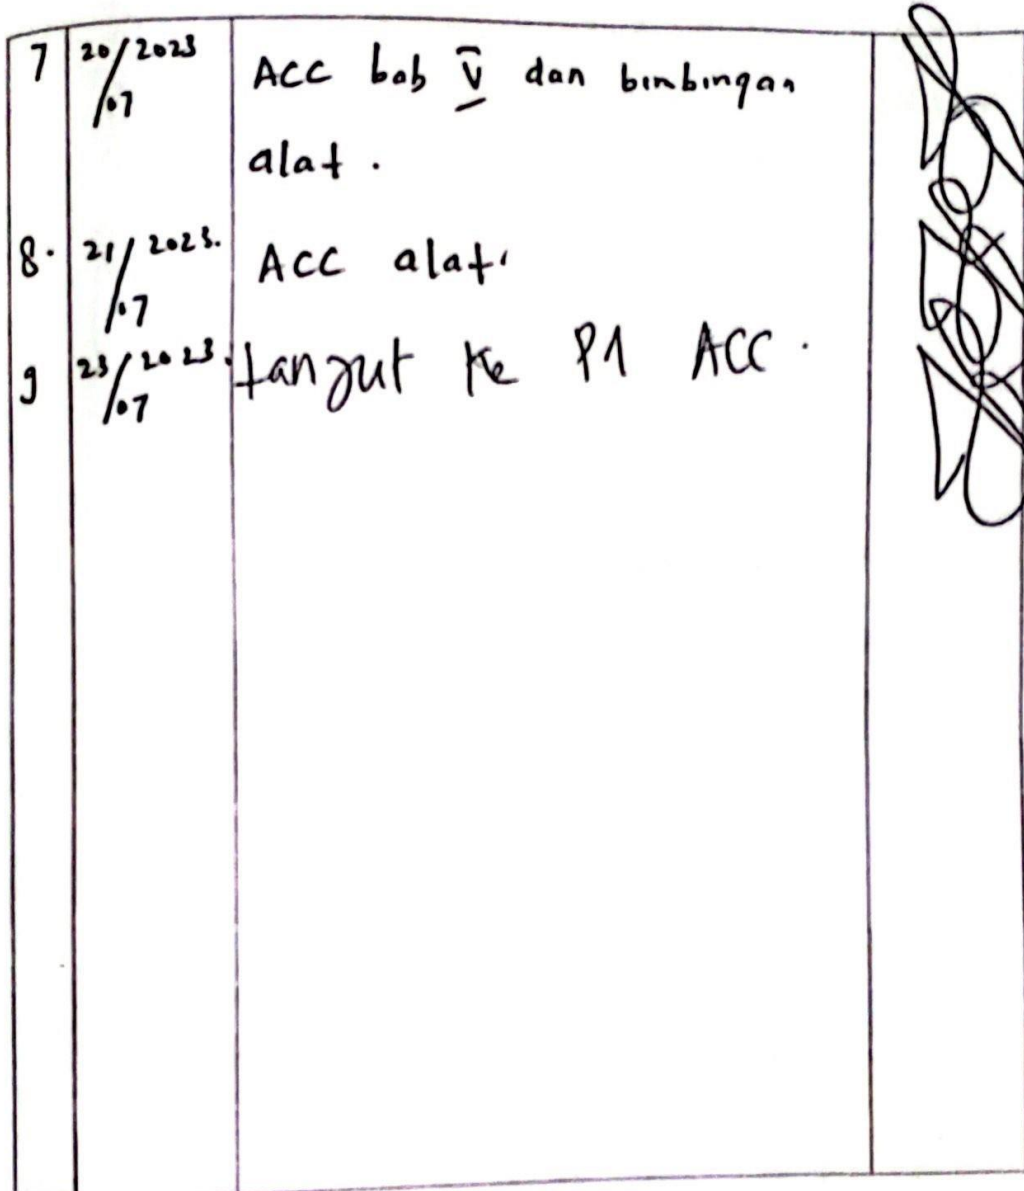 7 20/07 2023 ACC bab V dan bimbingan
alat.
8. 21/07 2023. ACC alat.
9 23/07 2023. lanjut ke P1 ACC.